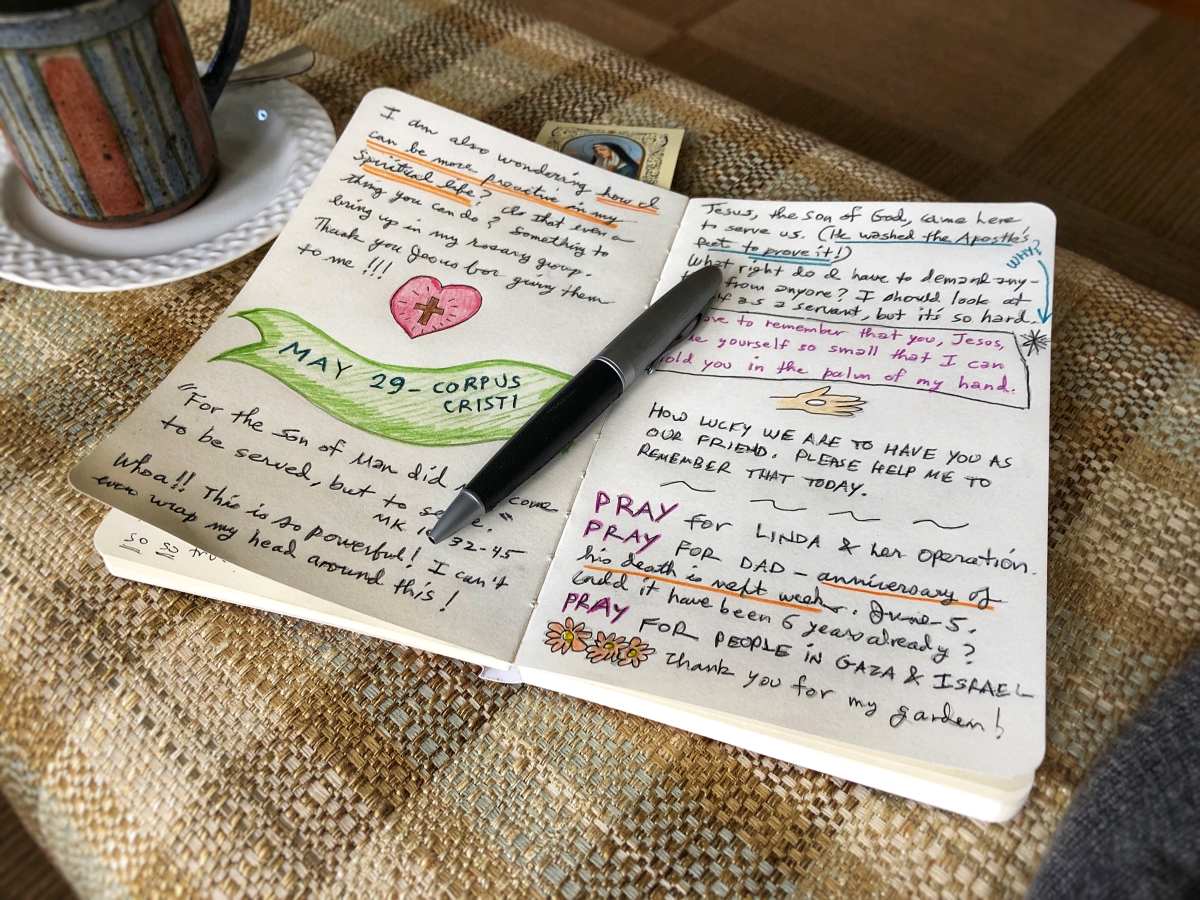 I am also wondering how I
can be more proactive in my
Spiritual life? Is that even a
thing you can do? Something to
bring up in my rosary group.
Thank you Jesus for giving them
to me!!!
MAY 29 - CORPUS
CRISTI
"For the Son of Man did come
to be served, but to
MK 32-45
Whoa!! This is so powerful! I can't
even wrap my head around this!
so so
Jesus, the son of God, came here
to serve us. (He washed the Apostle's
feet to prove it!)
WHY?
What right do I have to demand any-
from anyone? I should look at
as a servant, but it's so hard.
to remember that you, Jesus,
yourself so small that I can
hold you in the palm of my hand.
HOW LUCKY WE ARE TO HAVE YOU AS
OUR FRIEND. PLEASE HELP ME TO
REMEMBER THAT TODAY.
PRAY for LINDA & her operation.
PRAY FOR DAD - anniversary of
his death is next week. June 5.
Could it have been 6 years already?
PRAY FOR PEOPLE IN GAZA & ISRAEL
Thank you for my garden!